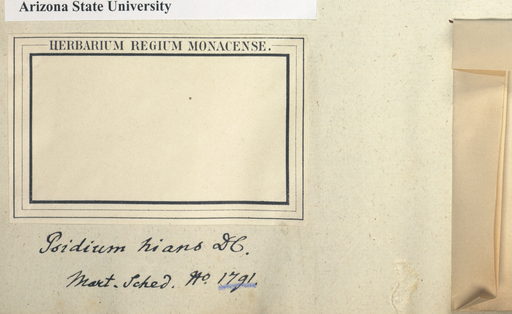 Arizona State University
HERBARIUM REGIUM MONACENSE.
Psidium hians DC.
Mart. Sched. No. 1791.